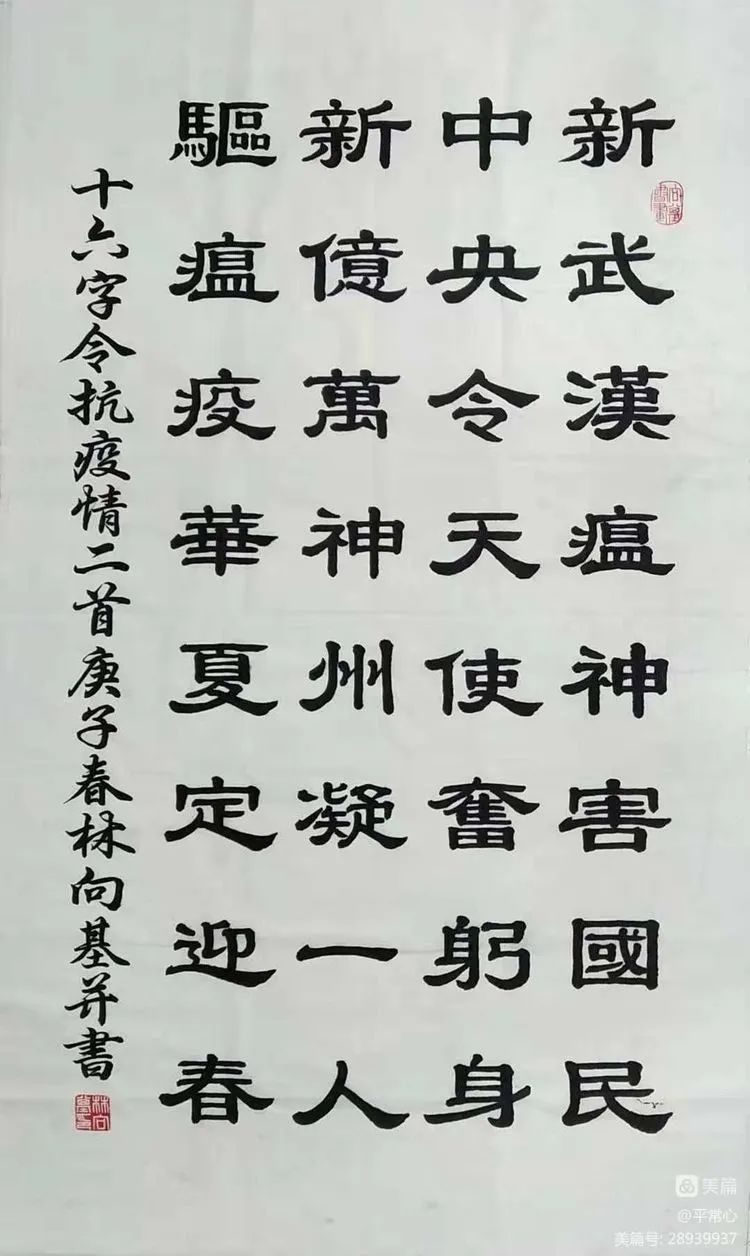 新武漢瘟神害國民
中央令天使奮躬身
新億萬神州凝一人
驅瘟疫華夏定迎春
十六字令抗疫情二首庚子春林向基并書
美篇
@平常心
美篇号: 28939937